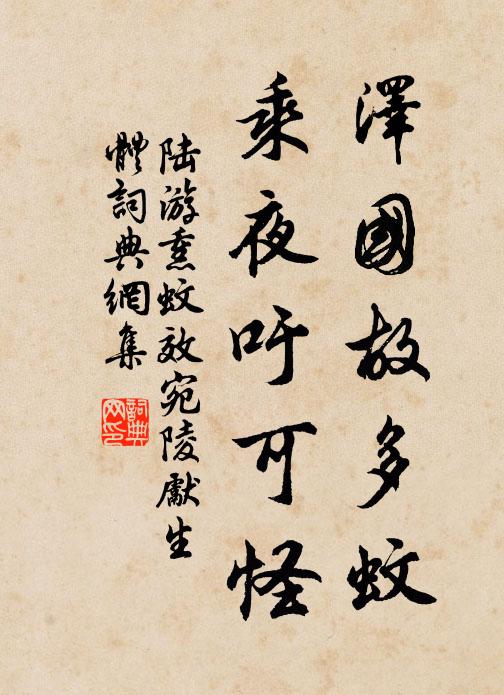 澤國故多蚊
乘夜吁可怪
陸游熏蚊效宛陵獻生
體詞典網集
詞典网印